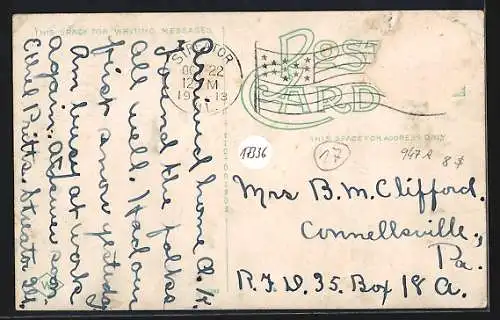 THIS SPACE FOR WRITING MESSAGES
Arrived home O.K.
Found the folks
all well. Had our
first snow yesterday
Am busy at work
again. Answer soon.
Earl Pritts, Streator Ill.
STREATOR
OCT 22
12 M
1913
ILL.
POST
CARD
THIS SPACE FOR ADDRESS ONLY
17336
17
947A 8$
Mrs B. M. Clifford.
Connellsville,
Pa.
R.F.D. 35. Box 18 A.